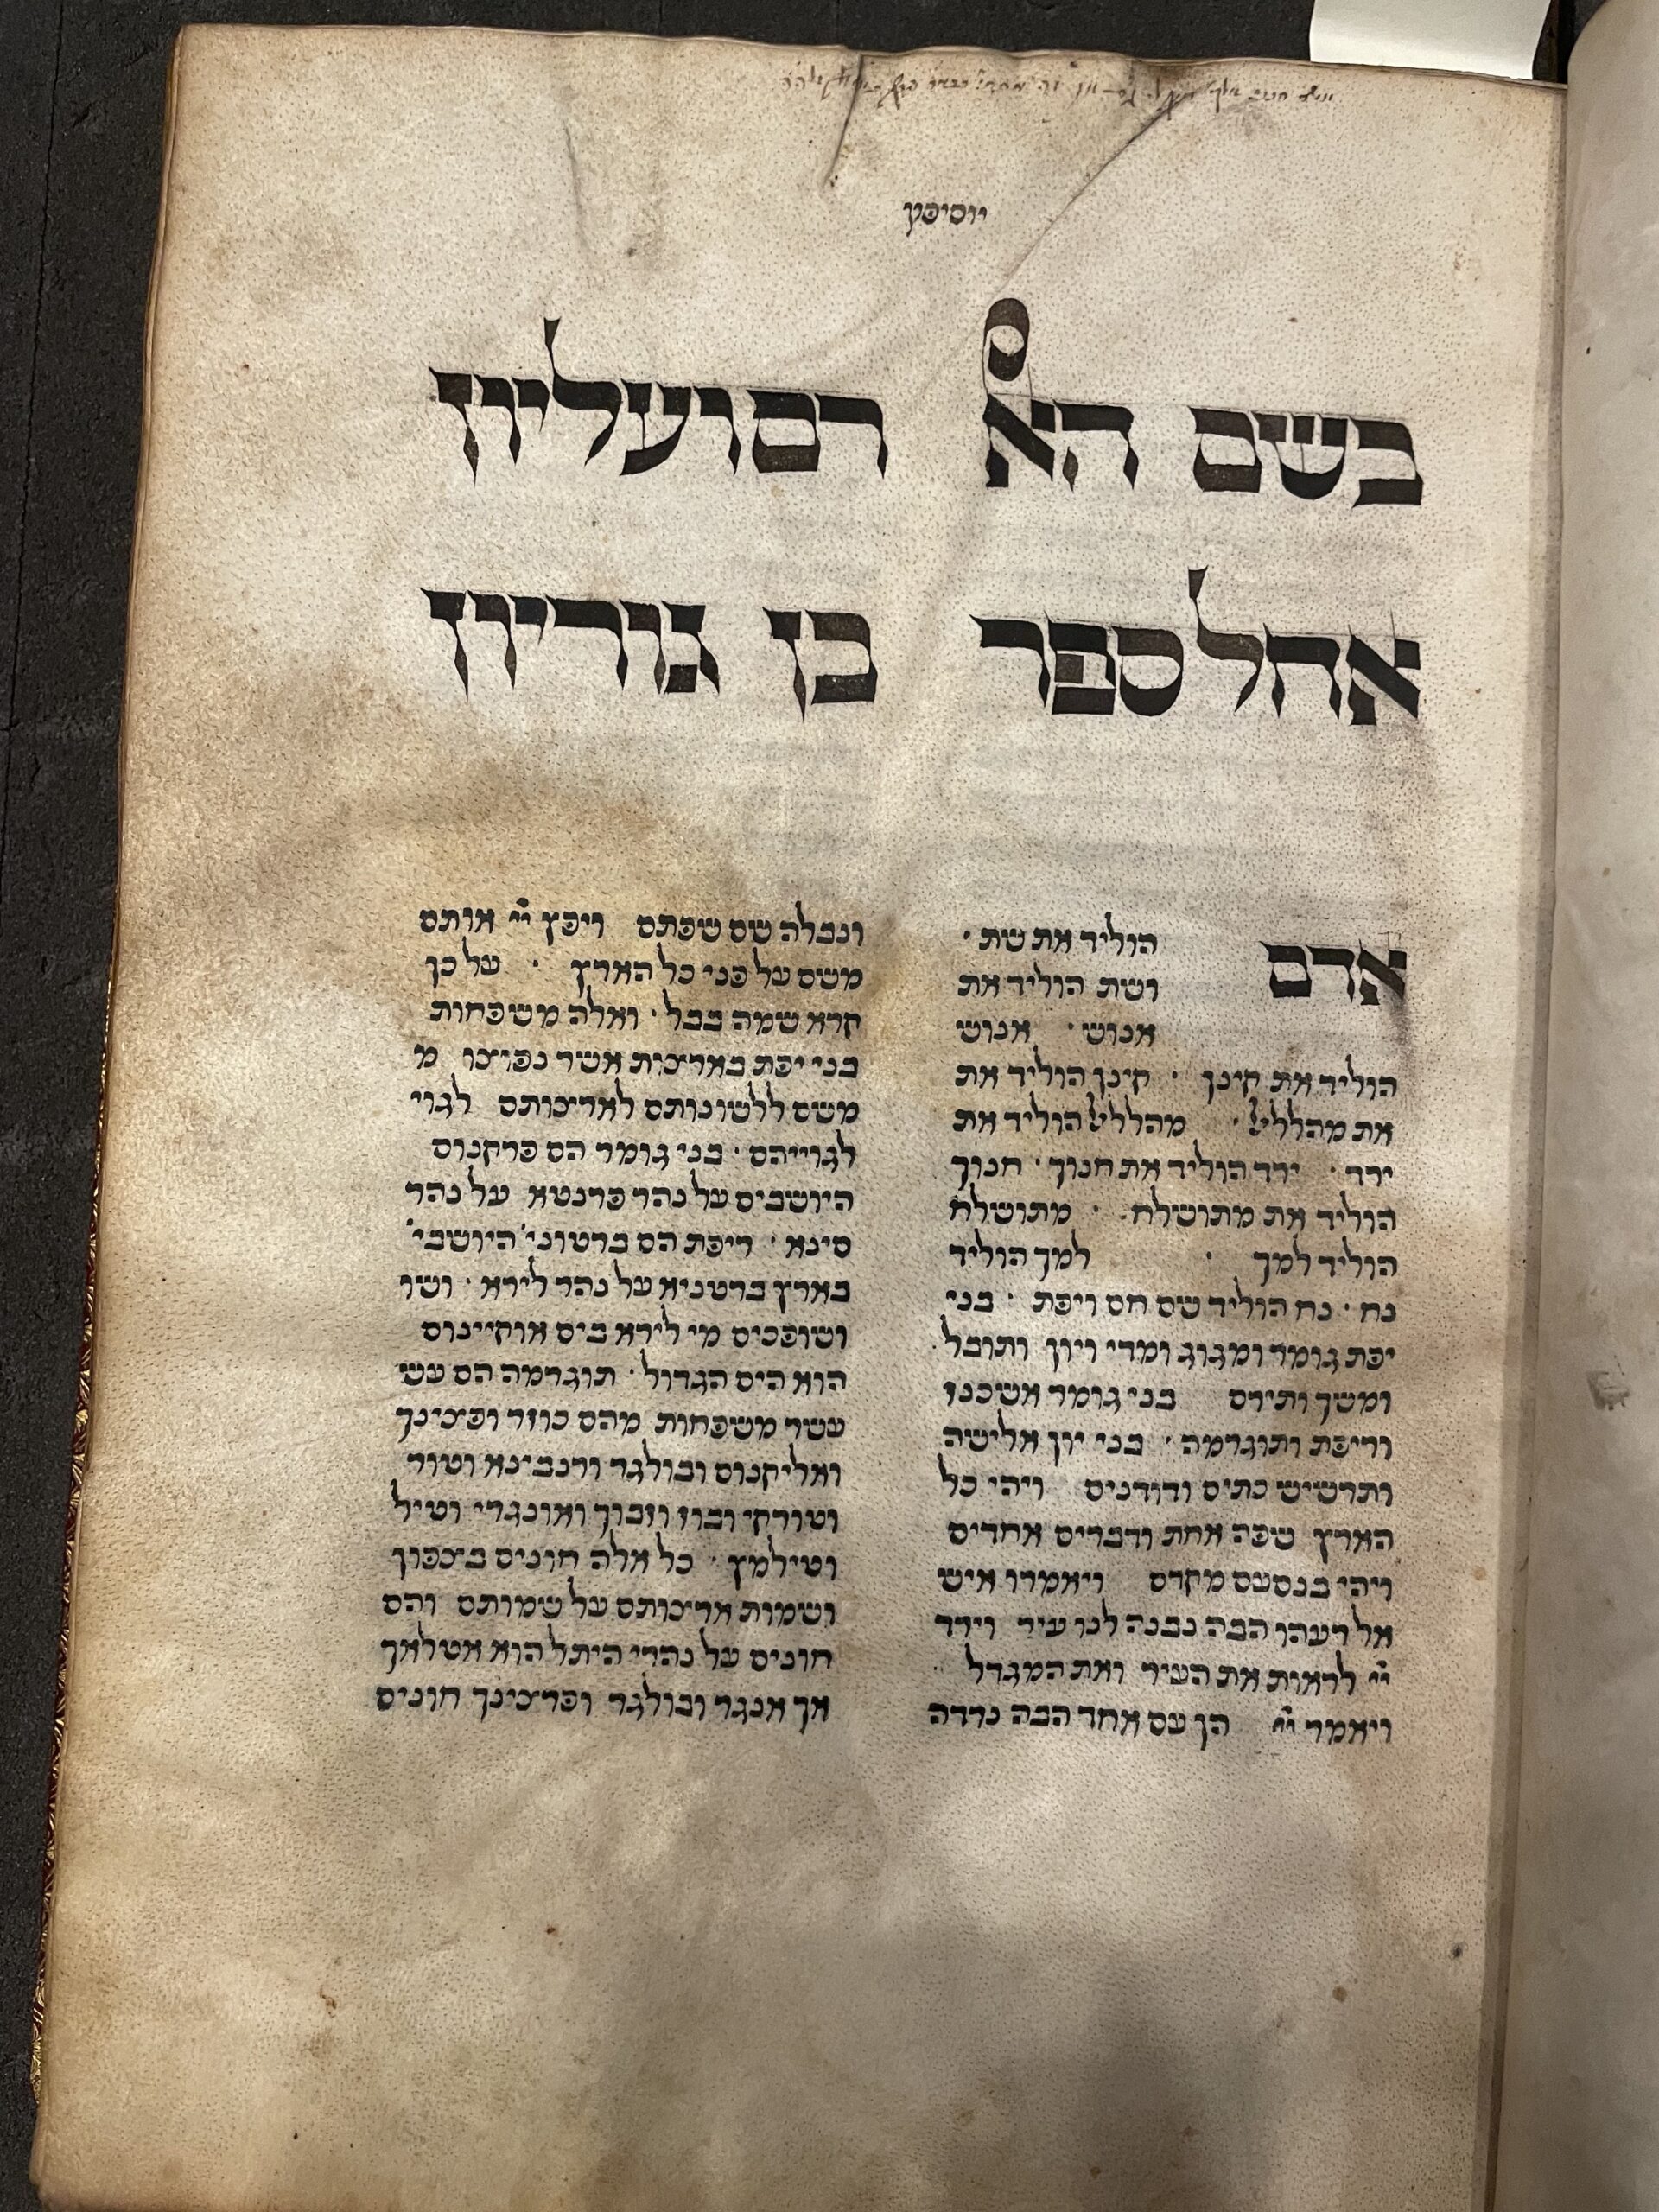 יוסיפון
בשם האל רם ועליון
אחל ספר בן גוריון
אדם הוליד את שת ·
ושת הוליד את
אנוש · אנוש
הוליד את קינן · קינן הוליד את
את מהללאל · מהללאל הוליד את
ירד · ירד הוליד את חנוך · חנוך
הוליד את מתושלח · מתושלח
הוליד למך · למך הוליד
נח · נח הוליד שם חם ויפת · בני
יפת גומר ומגוג ומדי ויון ותובל ·
ומשך ותירס בני גומר אשכנז
וריפת ותוגרמה · בני יון אלישה
ותרשיש כתים ודודנים ויהי כל
הארץ שפה אחת ודברים אחדים
ויהי בנסעם מקדם ויאמרו איש
אל רעהו הבה נבנה לנו עיר וירד
ייי לראות את העיר ואת המגדל
ויאמר ייי הן עם אחד הבה נרדה
ונבלה שם שפתם ויפץ ייי אותם
משם על פני כל הארץ · על כן
קרא שמה בבל · ואלה משפחות
בני יפת בארצות אשר נפוצו מ
משם ללשונותם לארצותם לגוי
לגוייהם · בני גומר הם פרקנוס
היושבים על נהר פרנטא על נהר
סינא · ריפת הם ברטוני היושבי'
בארץ ברטניא על נהר לירא · ושו
ושופכים מי לירא בים אוקיינוס
הוא הים הגדול · תוגרמה הם עש
עשר משפחות מהם כוזר ופצינך
ואליקנוס ובולגר ורנבינא וטור
וטורקי ובוז וזבוך ואונגרי וטיל
וטילמץ · כל אלה חונים בצפון
ושמות ארצותם על שמותם והם
חונים על נהרי היתל הוא אטלאך
אך אנגר ובולגר ופצינך חונים